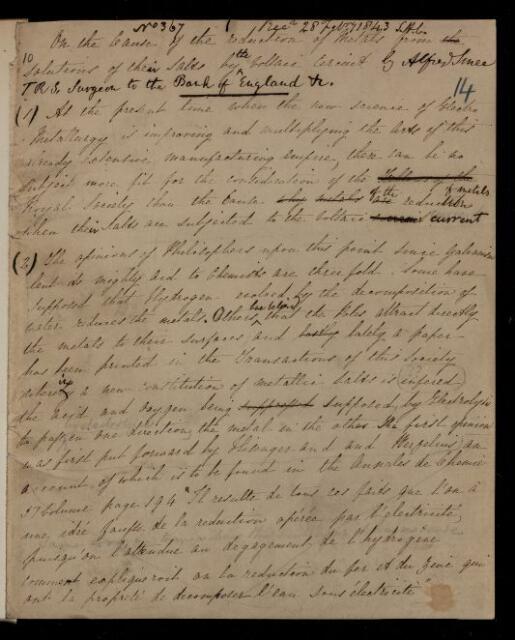 No 367 Rec. 28 Feby 1843 S.H.C.
On the Cause of the reduction of Metals from the
10
solutions of their Salts by the Voltaic circuit by Alfred Smee
F.R.S. Surgeon to the Bank of England &c.
14
(1) At the present time when the new science of Electro
Metallurgy is improving and multiplying the Arts of this
already extensive manufacturing empire, there can be no
subject more fit for the consideration of the
Royal Society than the Cause of the reduction of metals
when their Salts are subjected to the Voltaic current
(2) The opinions of Philosophers upon this point since Galvanism
lent its mighty aid to Chemists are three fold. Some have
supposed that Hydrogen evolved by the decomposition of
water reduces the metals. Others that the Poles attract directly
the metals to their surfaces and lastly lately a paper
has been printed in the Transactions of this Society
where in a new constitution of metallic Salts is infered
the acid and oxygen being supposed by Electrolysis
to pass in one direction, the metal in the other. The first opinion
was first put forward by Hisinger and and Berzelius an
account of which is to be found in the Annales de Chemie
Volume page 194 "Il resulte de tous ces faits que l'on a
une idée fausse de la reduction opérée par l'électricité,
puisqu'on l'attendue au degagement de l'hydrogène
comment expliqueroit on la reduction du fer et du zinc qui
ont la propreté de decomposer l'eau sans électricité"